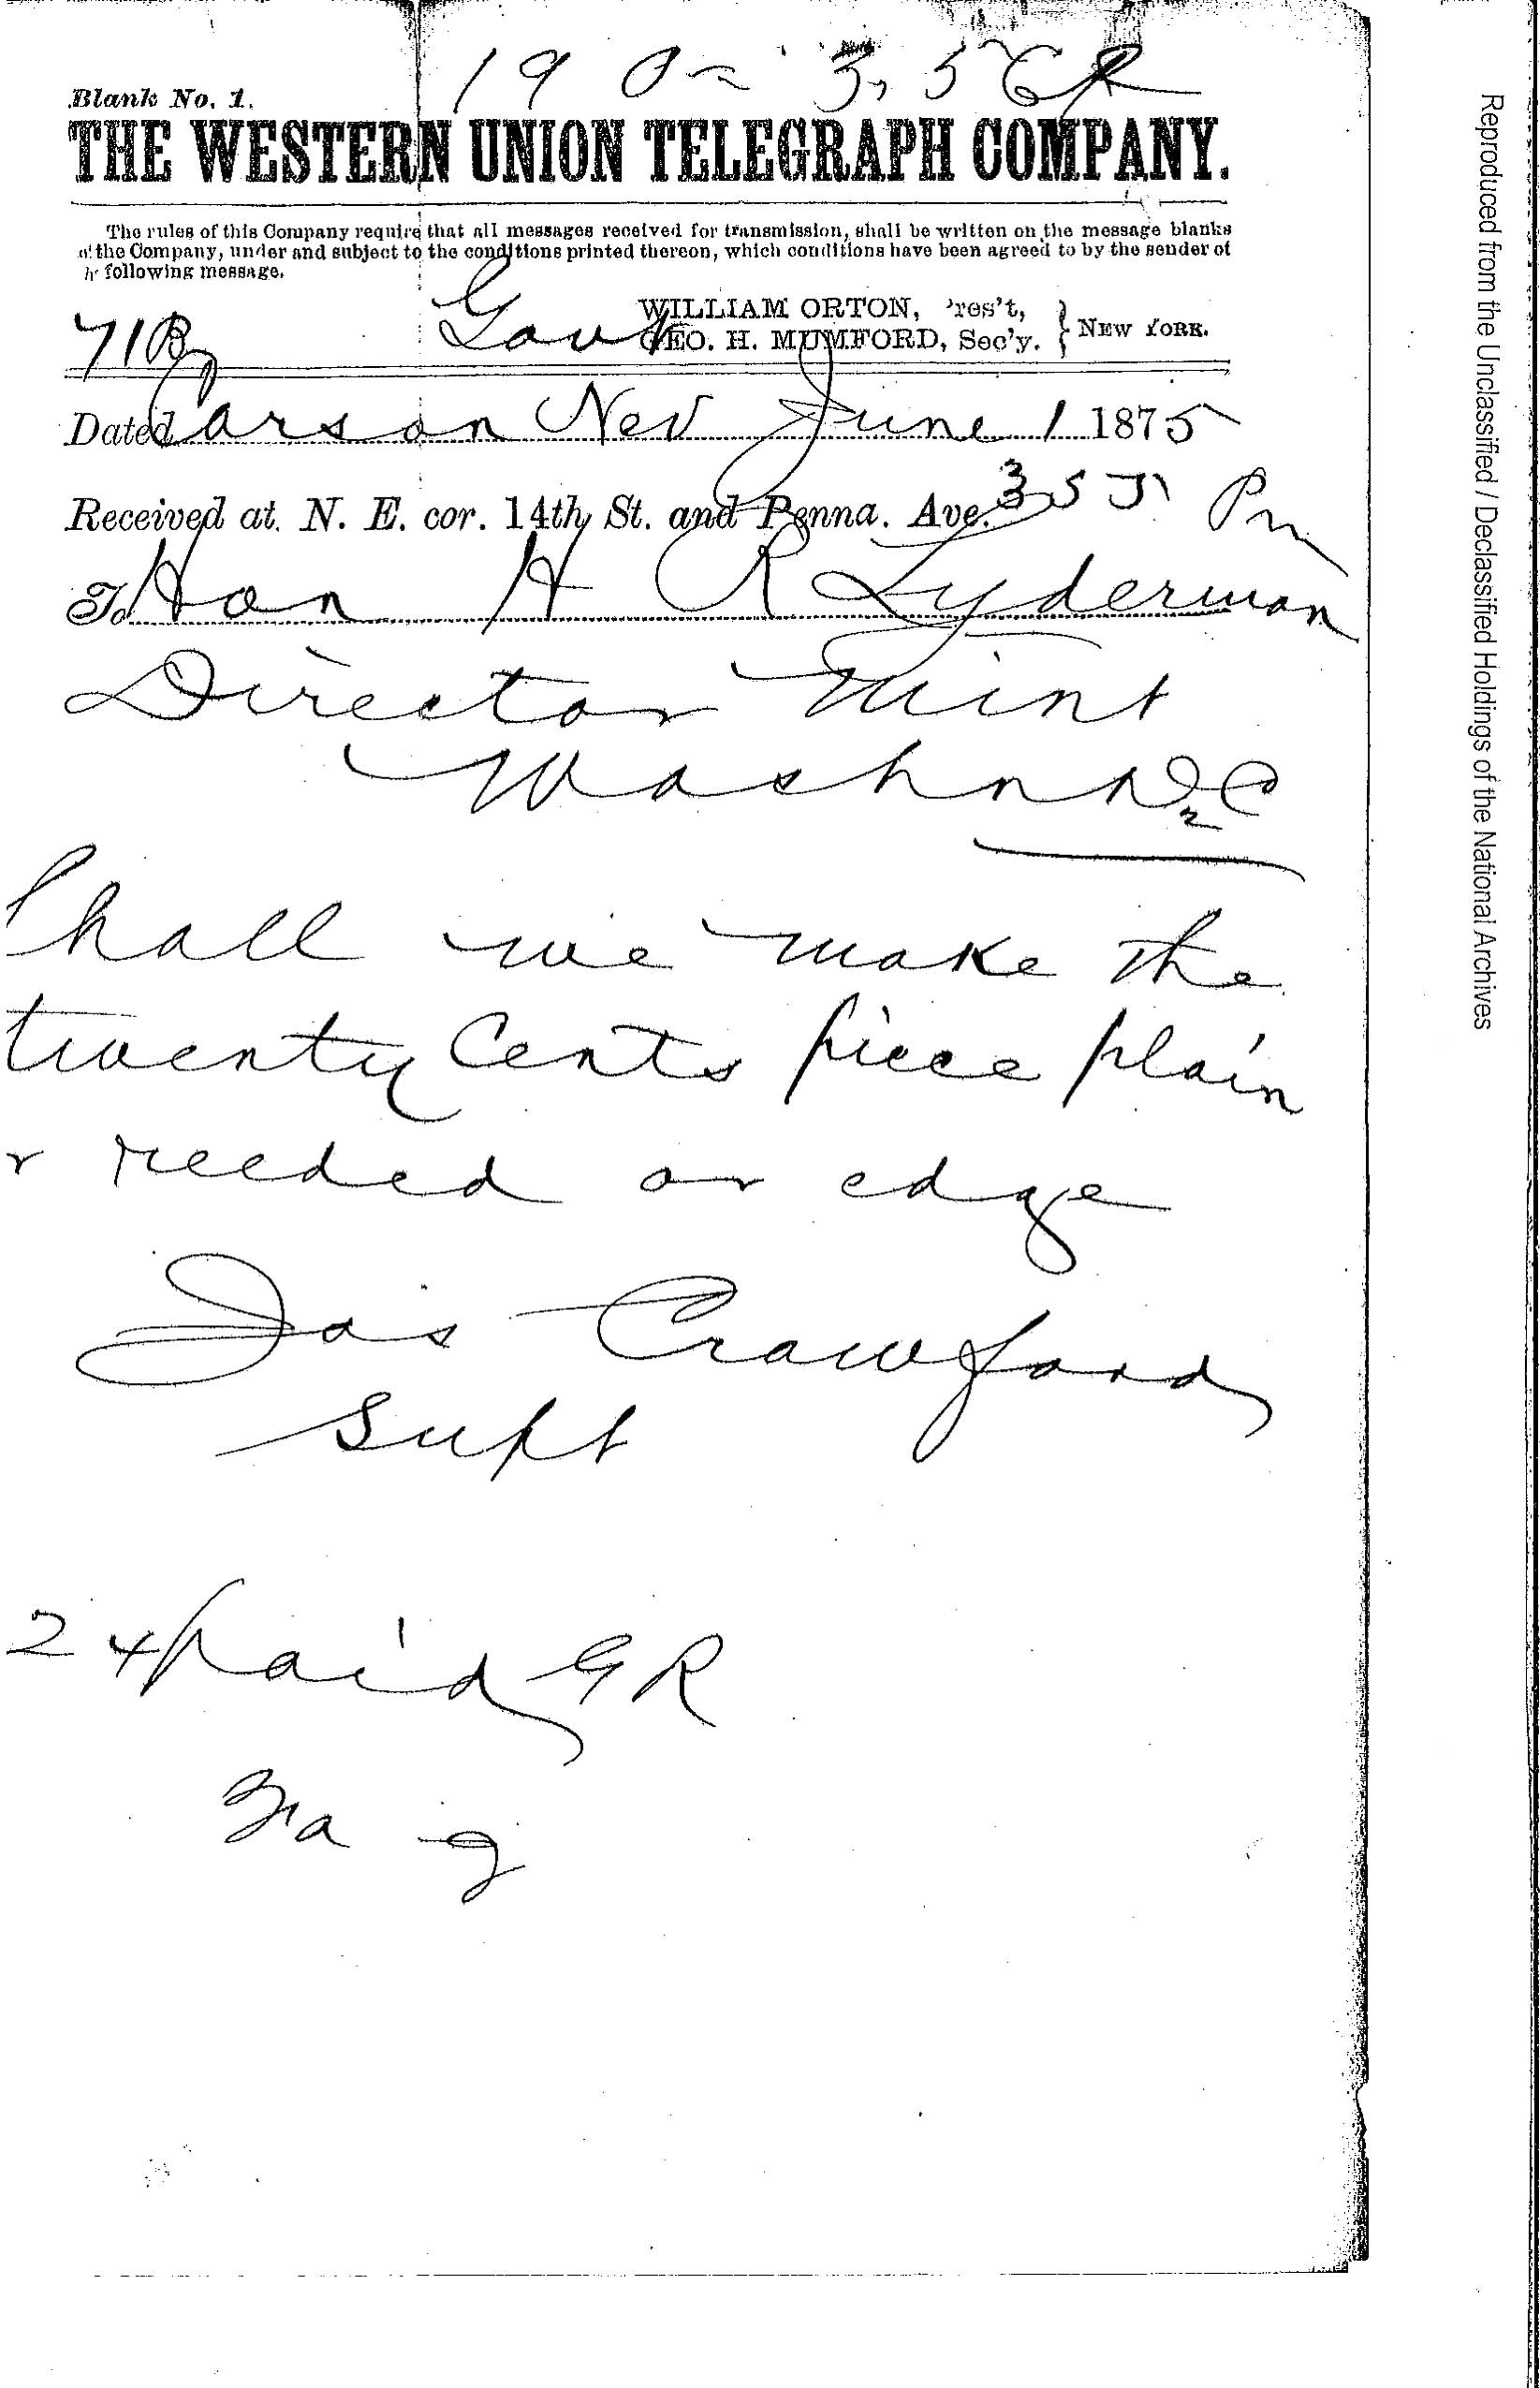 Blank No. 1.
THE WESTERN UNION TELEGRAPH COMPANY.
The rules of this Company require that all messages received for transmission, shall be written on the message blanks
of the Company, under and subject to the conditions printed thereon, which conditions have been agreed to by the sender of
following message.
WILLIAM ORTON, 'res't,
GEO. H. MUMFORD, Sec'y. } NEW YORK.
71 B Govt
Dated Carson Nev June 1 1875
Received at N. E. cor. 14th St. and Penna. Ave. 355 Pm
To Hon H R Lyderman
Director Mint
Washn DC
Shall we make the
twenty Cents piece plain
r reeded on edge
Jas Crawford
Supt
24 paid GR
Reproduced from the Unclassified / Declassified Holdings of the National Archives